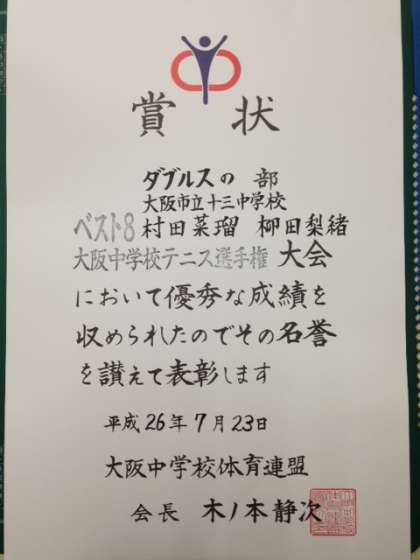 賞状
ダブルスの 部
大阪市立十三中学校
ベスト8 村田菜瑠 柳田梨緒
大阪中学校テニス選手権 大会
において優秀な成績を
収められたのでその名誉
を讃えて表彰します
平成26年7月23日
大阪中学校体育連盟
会長 木ノ本静次